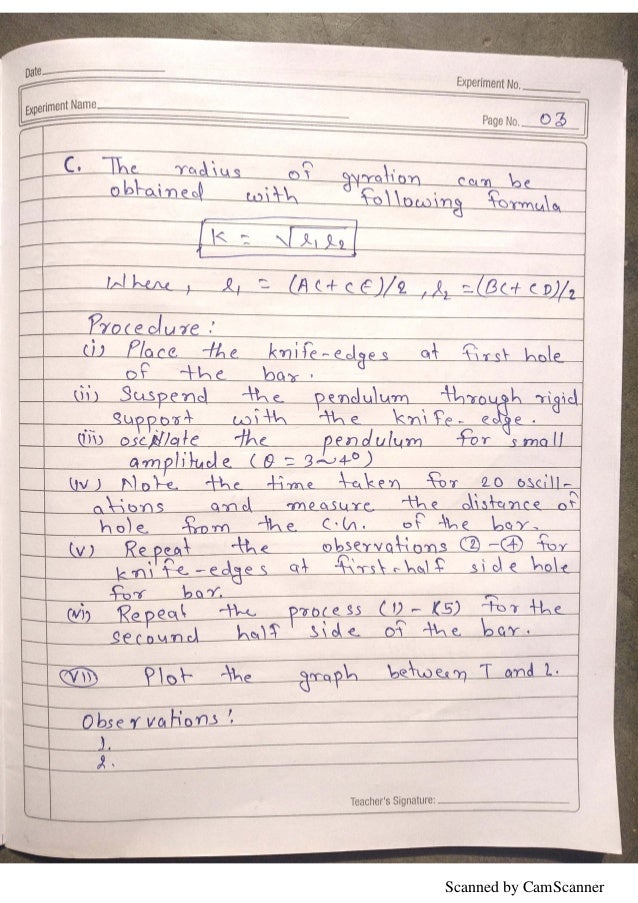 Date
Experiment No.
Experiment Name
Page No. 03
C. The radius of gyration can be
obtained with following formula
K = √l₁l₂
Where, l₁ = (AC+CE)/2, l₂ = (BC+CD)/2
Procedure:
(i) Place the knife-edges at first hole
of the bar.
(ii) Suspend the pendulum through rigid
support with the knife-edge.
(iii) oscillate the pendulum for small
amplitude (θ = 3~4°)
(iv) Note the time taken for 20 oscill-
ations and measure the distance of
hole from the C.G. of the bar.
(v) Repeat the observations ②-④ for
knife-edges at first-half side hole
for bar.
(vi) Repeat the process (1)-(5) for the
secound half side of the bar.
(VII) Plot the graph between T and L.
Observations:
1.
2.
Teacher's Signature:
Scanned by CamScanner